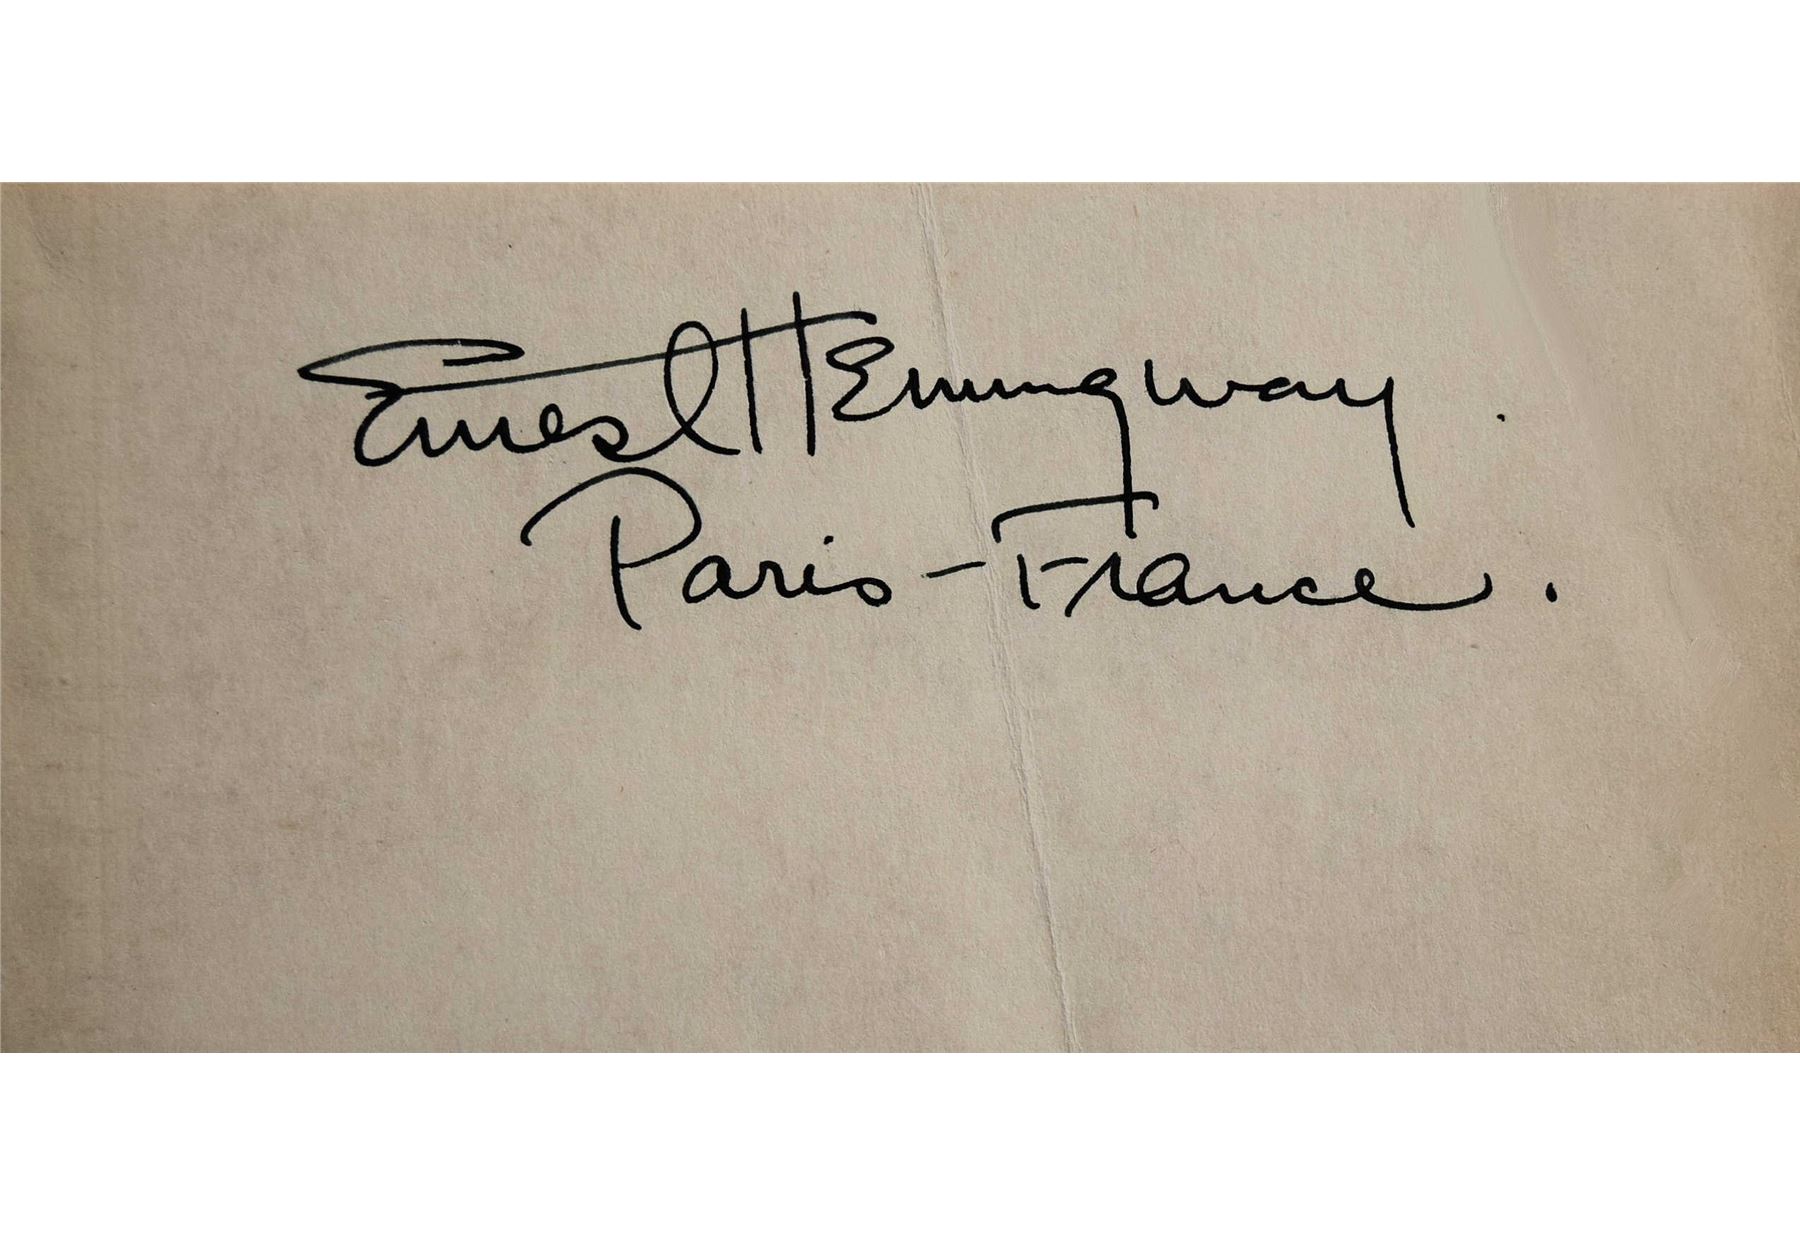 Ernest Hemingway
Paris - France.